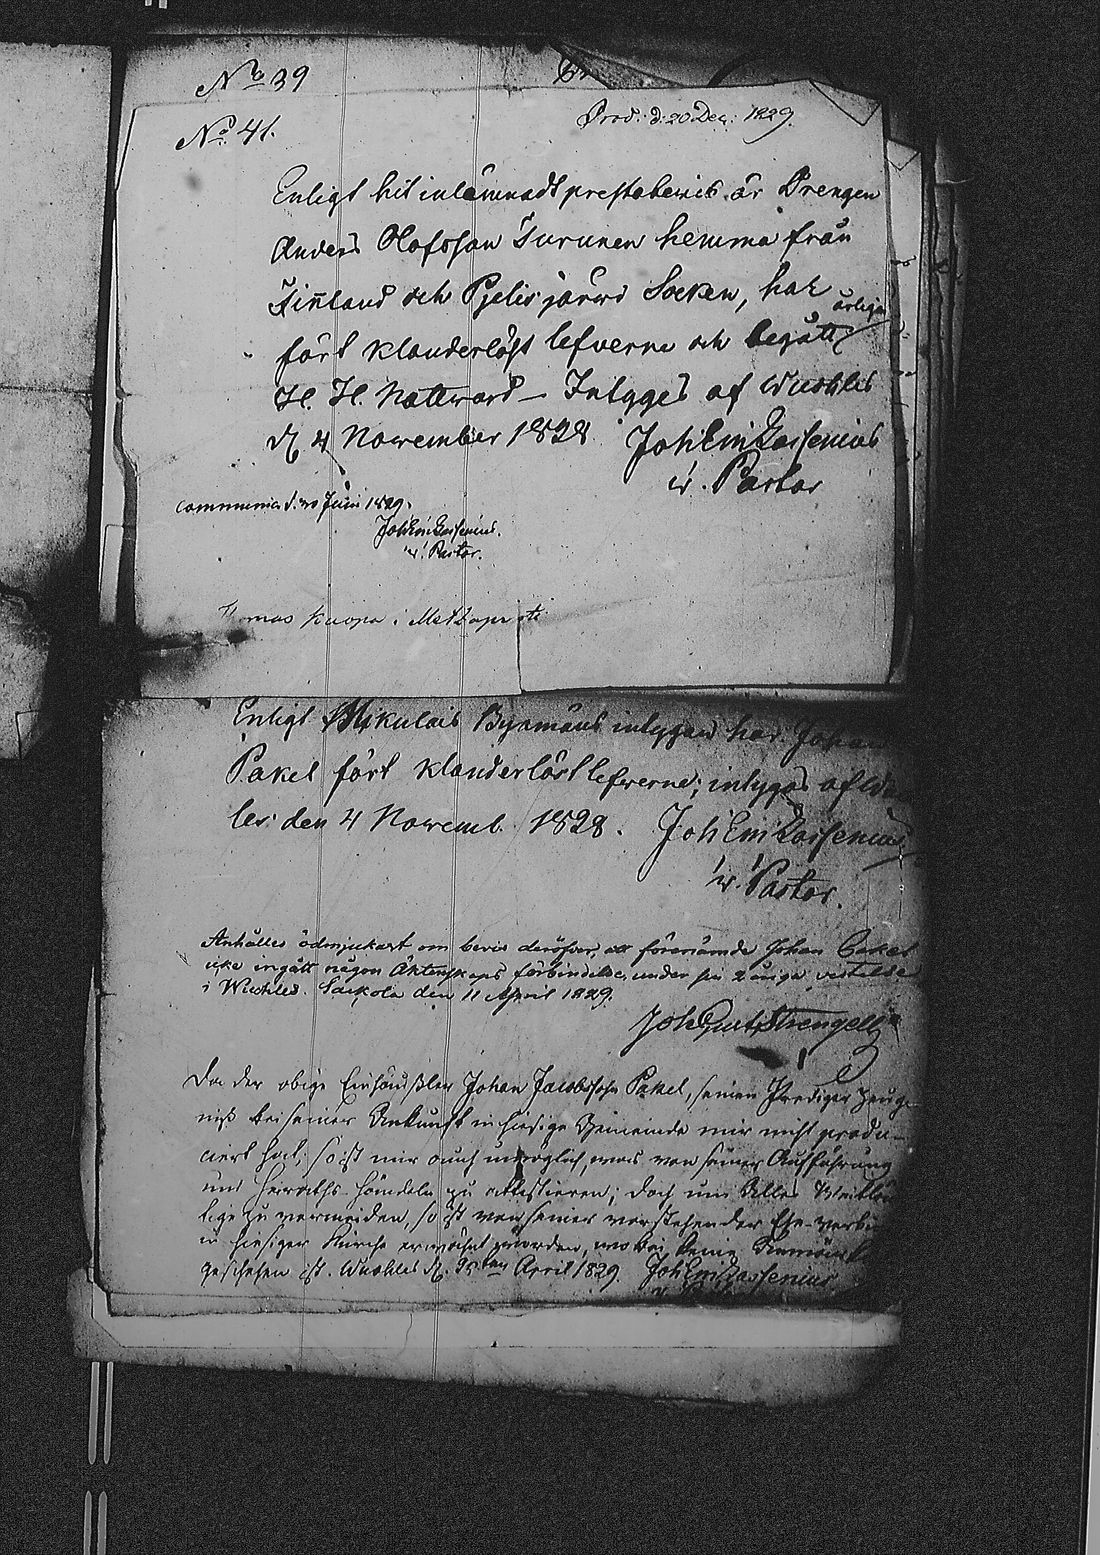 No 39
No. 41.
Prod. d. 20 Dec: 1829.
Enligt hit inlämnadt prestabevis är Drengen
Anders Olofsson Turunen hemma från
Finland och Pjelisjärvi Socken, har
årligen
fört klanderlöst lefverne och begått
H. H. Nattward – Intyges af Wuohles
d. 4 November 1828. Joh Em Zassenius
v. Pastor
communic. d. 20 Juni 1829.
Joh Em Zassenius.
v. Pastor.
Kuopa i
Enligt Nikulais Byemäns intygan har Johan
Pakel fört klanderlöst lefverne; intygas af
les den 4 Novemb. 1828. Joh Em Zassenius
v. Pastor.
Anhålles ödmjukast om bevis deröfver, att förenämde Johan Pakel
icke ingått någon Äktenskaps förbindelse, under sin 2 åriga vistelse
i Wuohles. Sackola den 11 April 1829.
Joh Gust Strengell
Da der obige Johan Jacobssohn Pakel, seinen Prediger Zeug
niß bei seiner Ankunft in hiesige Gemeinde mir nicht produ-
ciert hat; so ist mir auch unmöglich, was von seiner Aufführung
und Heiraths-händeln zu attestieren; doch um Alles
lige zu vermeiden, so ist von seiner vorstehender Ehe-verbin
in hiesiger Kirche erwähnt worden, wobei keine
geschehen ist. Wuohles d. April 1829. Joh Em Zassenius